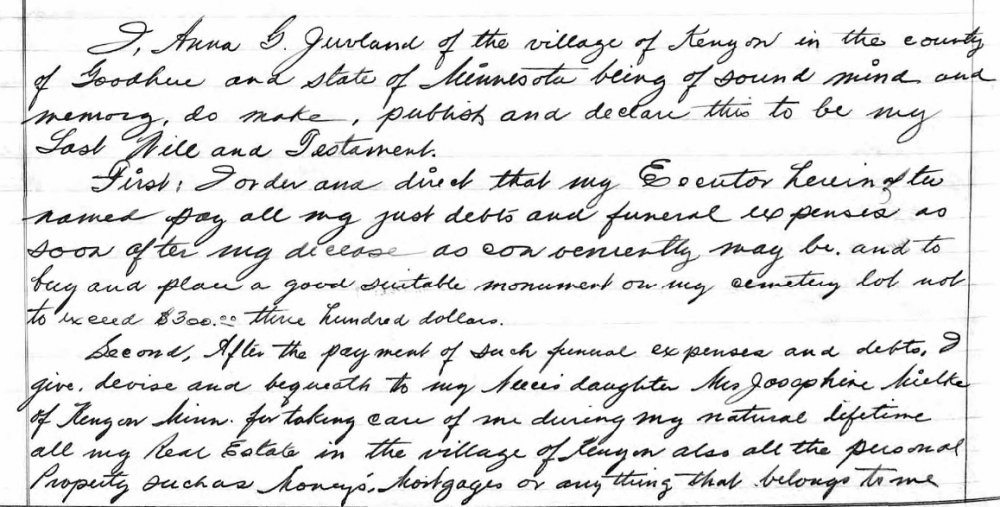 I, Anna G. Juvland of the village of Kenyon in the county
of Goodhue and state of Minnesota being of sound mind and
memory, do make, publish and declare this to be my
Last Will and Testament.
First; I order and direct that my Executor herein after
named pay all my just debts and funeral expenses as
soon after my decease as conveniently may be. and to
buy and place a good suitable monument on my cemetery lot not
to exceed $300.00 three hundred dollars.
Second, After the payment of such funeral expenses and debts, I
give, devise and bequeath to my Neeces daughter Mrs Josephine Mielke
of Kenyon Minn. for taking care of me during my natural lifetime
all my Real Estate in the village of Kenyon also all the personal
Property such as Moneys, Mortgages or any thing that belongs to me